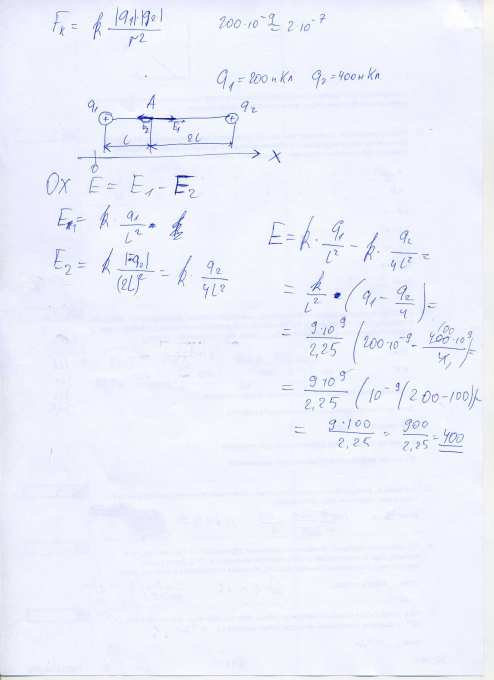 Fк = k |q1|·|q2| / r²
200·10⁻⁹ = 2·10⁻⁷
q1 = 200 нКл q2 = 400 нКл
q1 A q2
E2 E1
L 2L
0 X
OX E = E1 - E2
E1 = k · q1 / L²
E2 = k |-q2| / (2L)² = k · q2 / 4L²
E = k · q1 / L² - k · q2 / 4L² =
= k / L² · (q1 - q2 / 4) =
= 9·10⁹ / 2,25 (200·10⁻⁹ - 400·10⁻⁹ / 4) =
100
= 9·10⁹ / 2,25 (10⁻⁹(200-100)) =
= 9·100 / 2,25 = 900 / 2,25 = 400